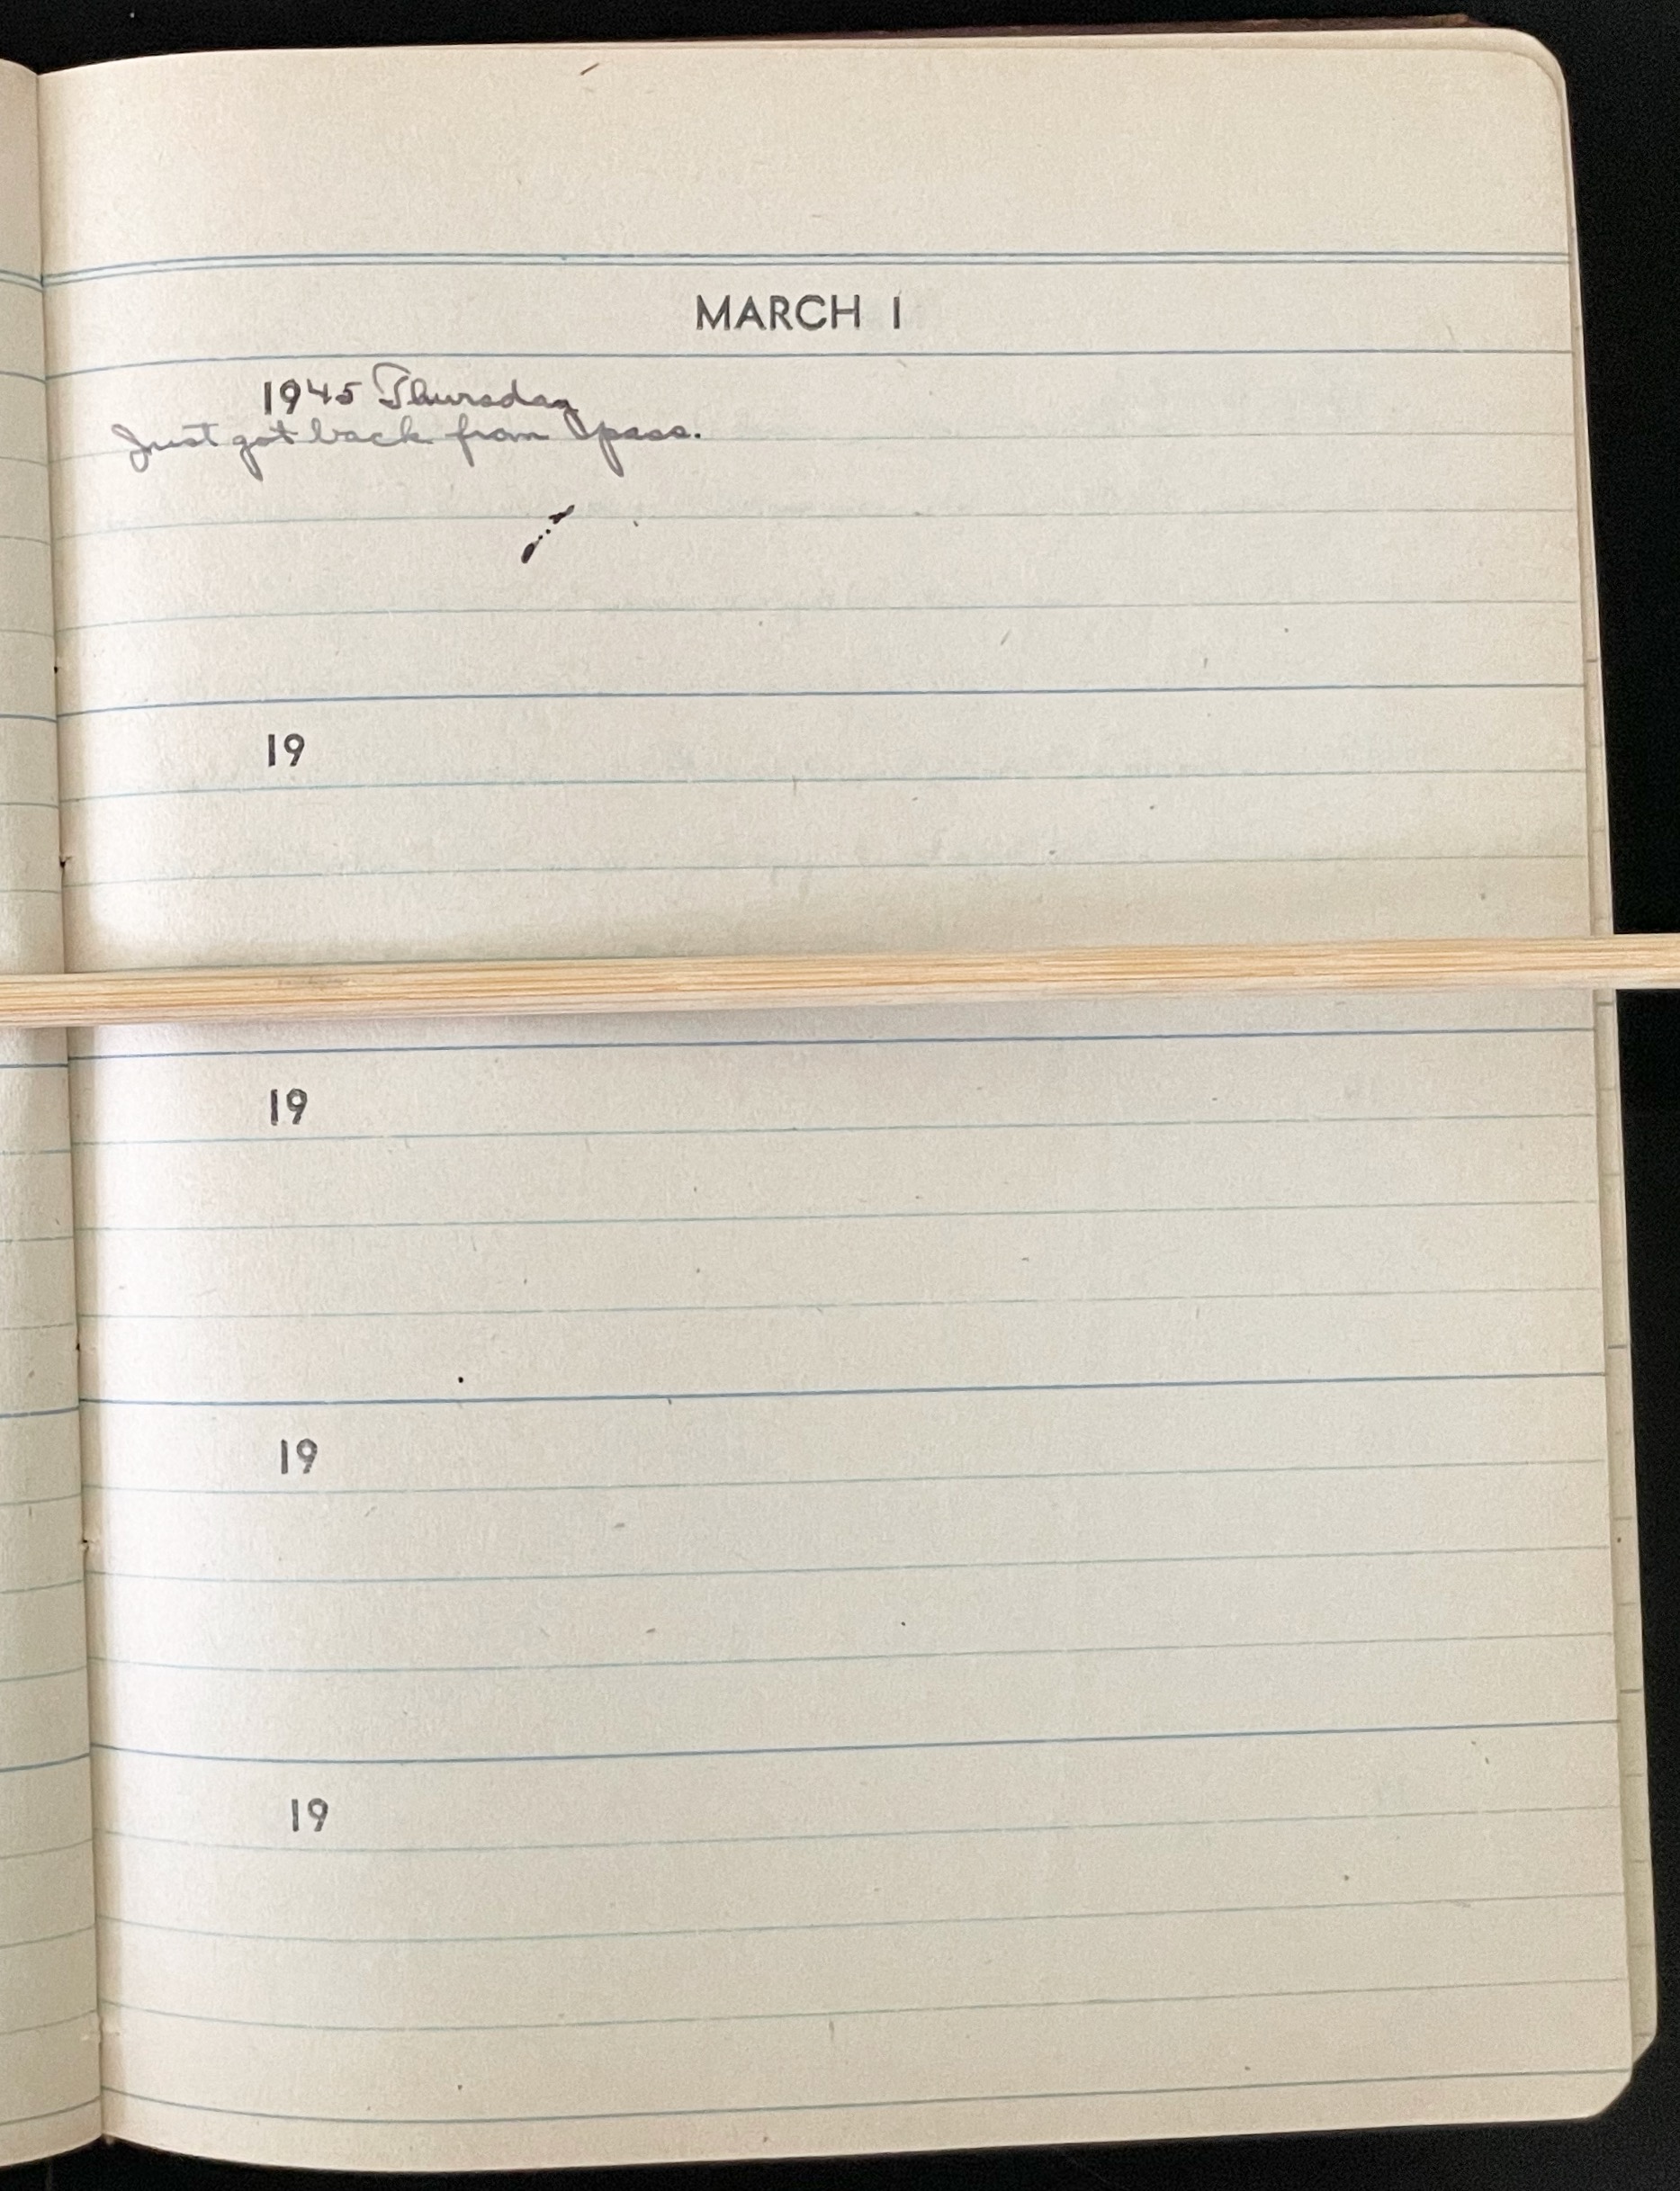 MARCH 1
1945 Thursday
Just got back from pass.
19
19
19
19